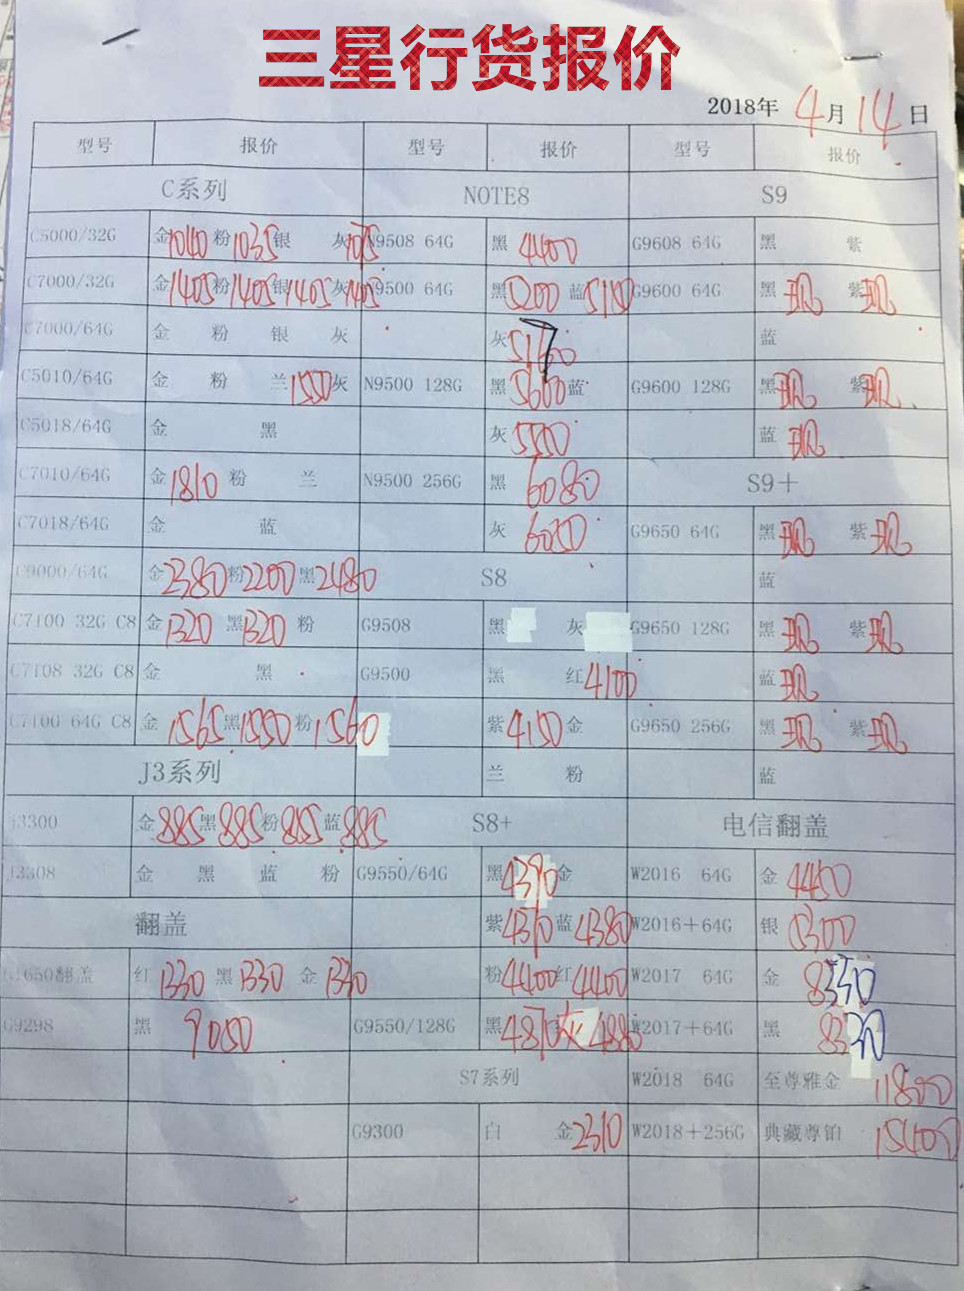 三星行货报价
2018年 4月14日
型号 报价 型号 报价 型号 报价
C系列 NOTE8 S9
C5000/32G 金1040 粉1035 银 灰1075 N9508 64G 黑 4400 G9608 64G 黑 紫
C7000/32G 金1405 粉1405 银1405 灰1405 N9500 64G 黑5200 蓝5110 G9600 64G 黑 现 紫现
C7000/64G 金 粉 银 灰 灰 蓝
C5010/64G 金 粉 兰1550 灰 N9500 128G 黑 蓝 G9600 128G 黑现 紫现
C5018/64G 金 黑 灰5550 蓝 现
C7010/64G 金1810 粉 兰 N9500 256G 黑 6080 S9+
C7018/64G 金 蓝 灰 6050 G9650 64G 黑现 紫现
C9000/64G 金2380 粉2200 黑2480 S8 蓝
C7100 32G C8 金1320 黑1320 粉 G9508 黑 灰 G9650 128G 黑 现 紫现
C7108 32G C8 金 黑 G9500 黑 红4100 蓝现
C7100 64G C8 金 1565 黑1550 粉1560 紫4150 金 G9650 256G 黑 现 紫现
J3系列 兰 粉 蓝
J3300 金885 黑885 粉855 蓝885 S8+ 电信翻盖
J3308 金 黑 蓝 粉 G9550/64G 黑4390 金 W2016 64G 金 4450
翻盖 紫4370 蓝4380 W2016+64G 银 5300
G1650翻盖 红1330 黑1330 金1330 粉4400 红4400 W2017 64G 金 8350
G9298 黑 9050 G9550/128G 黑4870 灰4880 W2017+64G 黑 8330
S7系列 W2018 64G 至尊雅金 11800
G9300 白 金2310 W2018+256G 典藏尊铂 15400